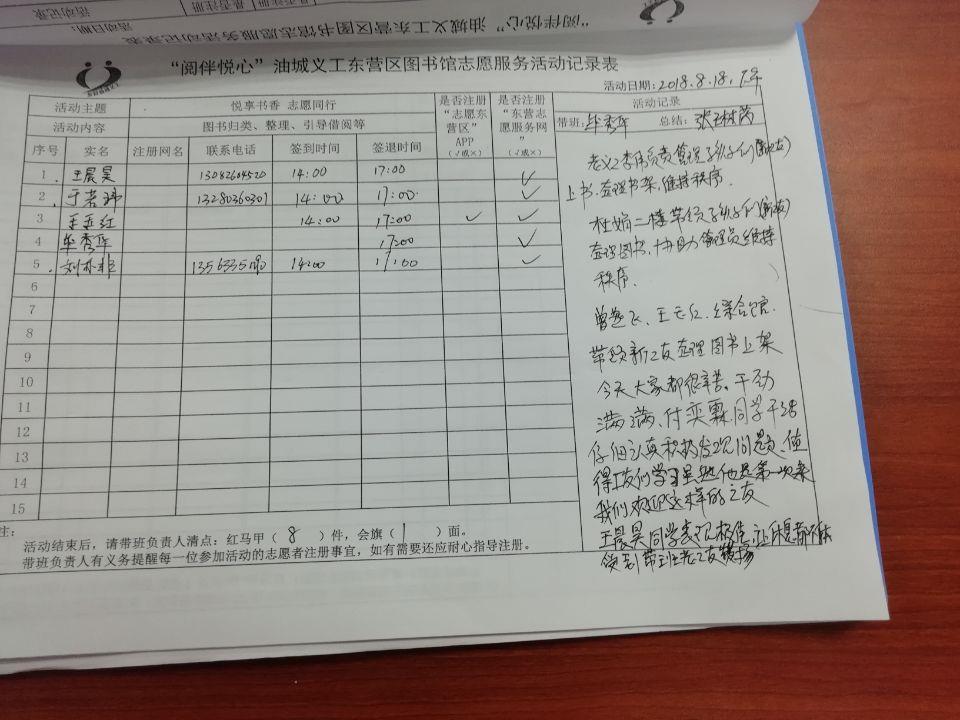 “阅伴悦心”油城义工东营区图书馆志愿服务活动记录表
活动日期：2018.8.18.下午
活动主题 悦享书香 志愿同行 是否注册“志愿东营区”APP（√或×） 是否注册“东营志愿服务网”（√或×） 活动记录
活动内容 图书归类、整理、引导借阅等 带班：毕秀华 总结：
序号 实名 注册网名 联系电话 签到时间 签退时间
1. 王晨昊 13082604520 14:00 17:00 ✓
2. 于若玮 13280360301 14:00 17:00 ✓
3 王玉红 14:00 17:00 ✓ ✓
4 毕秀华 17:00 ✓
5. 14:00 17:00 ✓
6
7
8
9
10
11
12
13
14
15
老义工李伟负责管理孩子们
上书.整理书架,维持秩序.
杜娟二楼带领孩子们
整理图书,协助管理员维持
秩序.
曾燕飞、王玉红、综合馆.
带领新工友整理图书上架
今天大家都很辛苦。干劲
满满、付奕霖同学干活
仔细认真积极发现问题,值
得我们学习虽然他是第一次来
我们欢迎这样的工友
王晨昊同学表现极佳,让休息都不休
领到带班老工友表扬
注：
活动结束后，请带班负责人清点：红马甲（8）件，会旗（1）面。
带班负责人有义务提醒每一位参加活动的志愿者注册事宜，如有需要还应耐心指导注册。